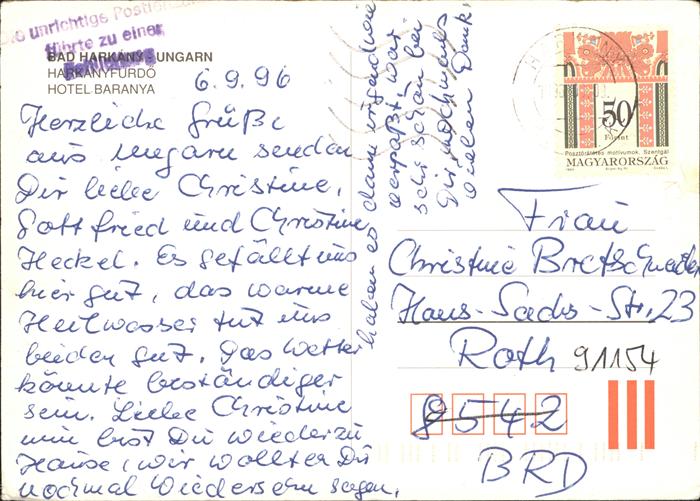 unrichtige Postleitzahl
führte zu einer
BAD HARKÁNY UNGARN
HARKÁNYFÜRDŐ
HOTEL BARANYA
6.9.96
Herzliche Grüße
aus Ungarn senden
Dir liebe Christine,
Gottfried und Christine
Heckel. Es gefällt uns
hier gut, das warme
Heilwasser tut uns
beiden gut. Das Wetter
könnte beständiger
sein. Liebe Christine
nun bist Du wieder zu
Hause, wir wollten Dir
nochmal Wiedersehn sagen,
haben es dann irgendwie
verpaßt, war
sehr schön bei
Dir, nochmals
vielen Dank.
50
Forint
Posztórátétes motívumok, Szentgál
MAGYARORSZÁG
Frau
Christine Bretschneider
Hans-Sachs-Str. 23
Roth 91154
8542
BRD